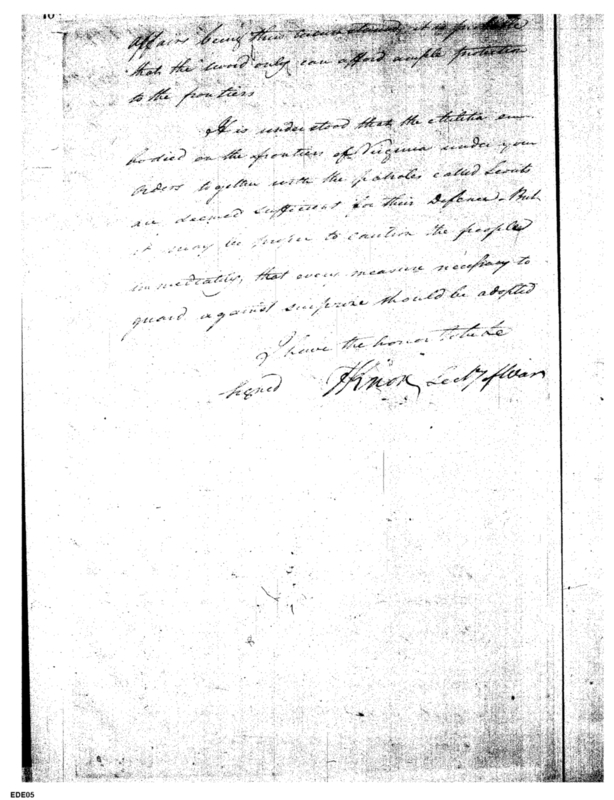 10
affairs being thus circumstanced, it is probable
that the sword only can afford ample protection
to the frontiers
It is understood that the Militia em-
bodied on the frontiers of Virginia under your
orders together with the patroles called Scouts
are deemed sufficient for their Defence. But
it may be proper to caution the people
immediately, that every measure necessary to
guard against surprize should be adopted
I have the honor to be &c
Signed HKnox Secy of War
EDE05